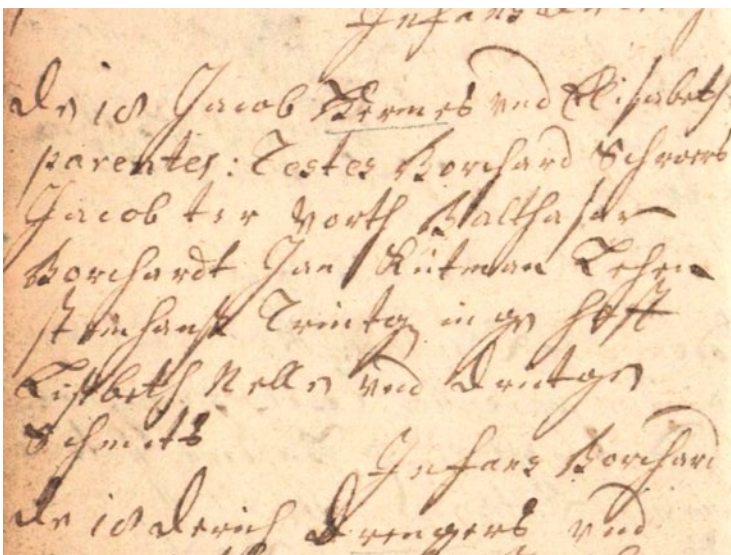 Infans
de 18 Jacob Kermes vnd Elisabeth
parentes: Testes Borchard Schroers
Jacob ter Vorth Balthasar
Borchardt Jan Kütman
Trintg in gn hoff
Lisbeth Nellen vnd Drutgen
Schmits
Infans Borchard
de 18 Derich Drengers vnd